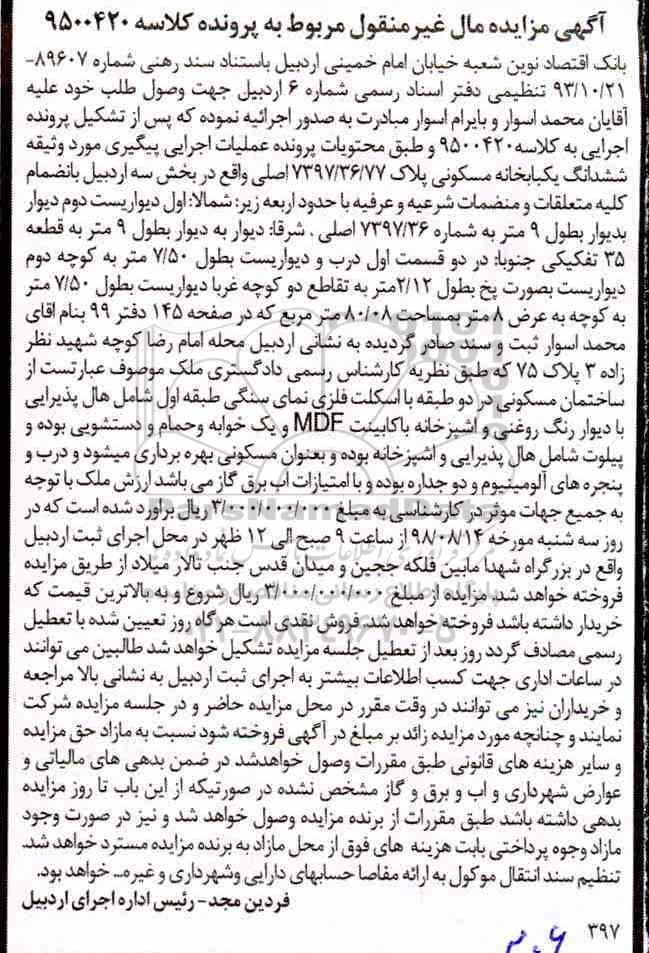 آگهی مزایده مال غیرمنقول مربوط به پرونده کلاسه ۹۵۰۰۴۲۰
بانک اقتصاد نوین شعبه خیابان امام خمینی اردبیل باستناد سند رهنی شماره ۸۹۶۰۷-
۹۳/۱۰/۲۱ تنظیمی دفتر اسناد رسمی شماره ۶ اردبیل جهت وصول طلب خود علیه
آقایان محمد اسوار و بایرام اسوار مبادرت به صدور اجرائیه نموده که پس از تشکیل پرونده
اجرایی به کلاسه ۹۵۰۰۴۲۰ و طبق محتویات پرونده عملیات اجرایی پیگیری مورد وثیقه
ششدانگ یکبابخانه مسکونی پلاک ۷۳۹۷/۳۶/۷۷ اصلی واقع در بخش سه اردبیل بانضمام
کلیه متعلقات و منضمات شرعیه و عرفیه با حدود اربعه زیر: شمالا: اول دیواریست دوم دیوار
بدیوار بطول ۹ متر به شماره ۷۳۹۷/۳۶ اصلی . شرقا: دیوار به دیوار بطول ۹ متر به قطعه
۳۵ تفکیکی جنوبا: در دو قسمت اول درب و دیواریست بطول ۷/۵۰ متر به کوچه دوم
دیواریست بصورت پخ بطول ۲/۱۲متر به تقاطع دو کوچه غربا دیواریست بطول ۷/۵۰ متر
به کوچه به عرض ۸ متر بمساحت ۸۰/۰۸ متر مربع که در صفحه ۱۴۵ دفتر ۹۹ بنام اقای
محمد اسوار ثبت و سند صادر گردیده به نشانی اردبیل محله امام رضا کوچه شهید نظر
زاده ۳ پلاک ۷۵ که طبق نظریه کارشناس رسمی دادگستری ملک موصوف عبارتست از
ساختمان مسکونی در دو طبقه با اسکلت فلزی نمای سنگی طبقه اول شامل هال پذیرایی
با دیوار رنگ روغنی و اشپزخانه باکابینت MDF و یک خوابه وحمام و دستشویی بوده و
پیلوت شامل هال پذیرایی و اشپزخانه بوده و بعنوان مسکونی بهره برداری میشود و درب و
پنجره های آلومینیوم و دو جداره بوده و با امتیازات اب برق گاز می باشد ارزش ملک با توجه
به جمیع جهات موثر در کارشناسی به مبلغ ۳/۰۰۰/۰۰۰/۰۰۰ ریال براورد شده است که در
روز سه شنبه مورخه ۹۸/۰۸/۱۴ از ساعت ۹ صبح الی ۱۲ ظهر در محل اجرای ثبت اردبیل
واقع در بزرگراه شهدا مابین فلکه ججین و میدان قدس جنب تالار میلاد از طریق مزایده
فروخته خواهد شد. مزایده از مبلغ ۳/۰۰۰/۰۰۰/۰۰۰ ریال شروع و به بالاترین قیمت که
خریدار داشته باشد فروخته خواهد شد. فروش نقدی است هرگاه روز تعیین شده با تعطیل
رسمی مصادف گردد روز بعد از تعطیل جلسه مزایده تشکیل خواهد شد طالبین می توانند
در ساعات اداری جهت کسب اطلاعات بیشتر به اجرای ثبت اردبیل به نشانی بالا مراجعه
و خریداران نیز می توانند در وقت مقرر در محل مزایده حاضر و در جلسه مزایده شرکت
نمایند و چنانچه مورد مزایده زائد بر مبلغ در آگهی فروخته شود نسبت به مازاد حق مزایده
و سایر هزینه های قانونی طبق مقررات وصول خواهدشد در ضمن بدهی های مالیاتی و
عوارض شهرداری و اب و برق و گاز مشخص نشده در صورتیکه از این باب تا روز مزایده
بدهی داشته باشد طبق مقررات از برنده مزایده وصول خواهد شد و نیز در صورت وجود
مازاد وجوه پرداختی بابت هزینه های فوق از محل مازاد به برنده مزایده مسترد خواهد شد.
تنظیم سند انتقال موکول به ارائه مفاصا حسابهای دارایی وشهرداری و غیره... خواهد بود.
فردین مجد- رئیس اداره اجرای اردبیل
۳۹۷